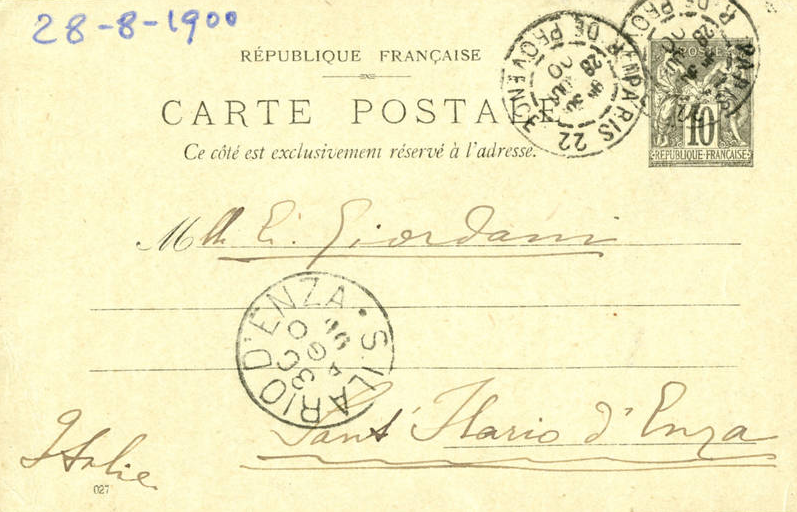 28-8-1900
RÉPUBLIQUE FRANÇAISE
CARTE POSTALE
Ce côté est exclusivement réservé à l'adresse.
PARIS 22
R. DE PROVENCE
28
PARIS 22
R. DE PROVEN
28
POSTES
10
REPUBLIQUE·FRANÇAISE
Mlle Giordani
S. ILARIO D'ENZA
30
AGO
Sant' Ilario d'Enza
Italie
027